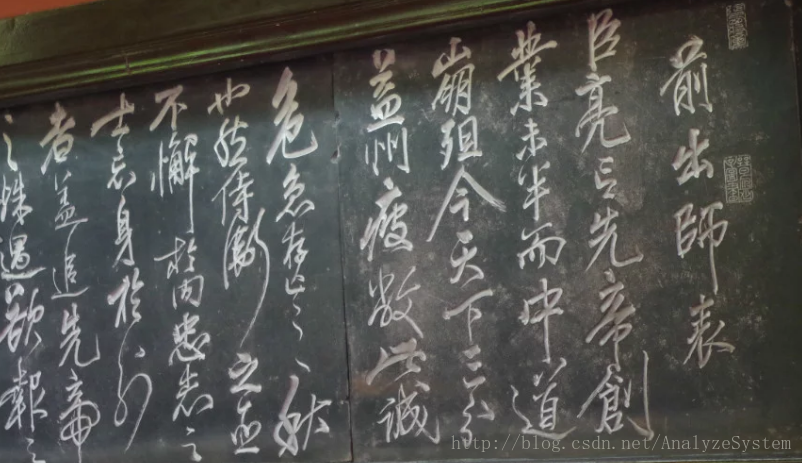 前出師表
臣亮言先帝創
業未半而中道
崩殂今天下三分
益州疲敝此誠
危急存亡之秋
也然侍衛之臣
不懈於内忠志之
士忘身於外
者蓋追先帝
之殊遇欲報之
http://blog.csdn.net/AnalyzeSystem